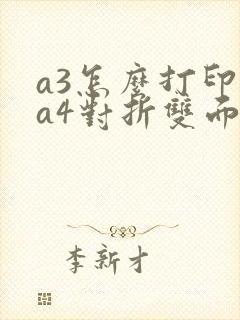 a3怎麼打印
a4對折雙面
李新才